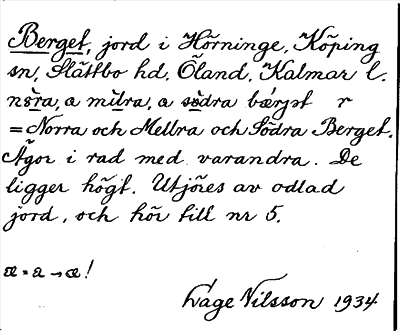 Berget, jord i Hörninge, Köping
sn, Slättbo hd, Öland, Kalmar l.
nö̀ra, a mìlra, a sö̀dra bǽrjət r
= Norra och Mellra och Södra Berget.
Ägor i rad med varandra. De
ligger högt. Utjöres av odlad
jord, och hör till nr 5.
æ = a → æ!
Åage Nilsson 1934